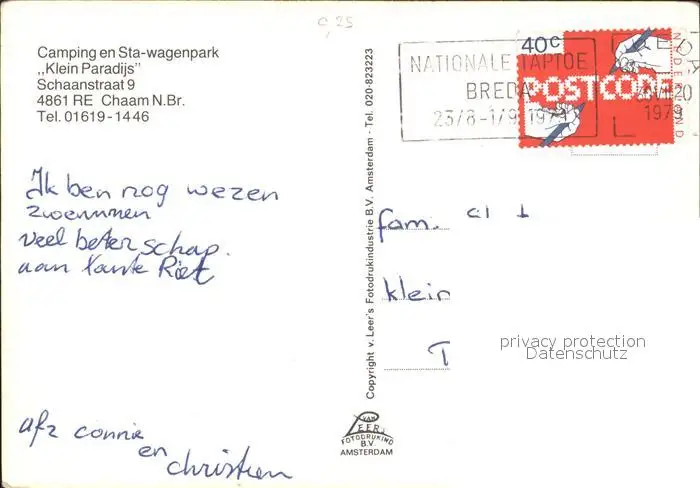 0,25
Camping en Sta-wagenpark
,,Klein Paradijs"
Schaanstraat 9
4861 RE Chaam N.Br.
Tel. 01619-1446
Ik ben nog wezen
zwemmen
veel beterschap.
aan tante Riet
afz connie
en
christien
Copyright v. Leer's Fotodrukindustrie B.V. Amsterdam - Tel. 020-823223
VAN
LEER
FOTODRUKIND
B.V.
AMSTERDAM
NATIONALE TAPTOE
BREDA
23/8-1/9 1979
40c
POSTCODE
NEDERLAND
BREDA
1979
fam.
klein
T
privacy protection
Datenschutz